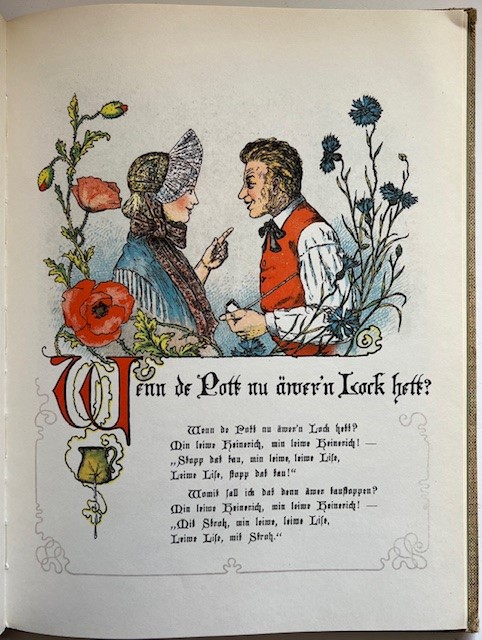 Wenn de Pott nu äwer'n Lock hett?
Wenn de Pott nu äwer'n Lock hett?
Min leiwe Heinerich, min leiwe Heinerich! —
„Stopp dat tau, min leiwe, leiwe Lise,
Leiwe Lise, stopp dat tau!“
Womit sall ich dat denn äwer taustoppen?
Min leiwe Heinerich, min leiwe Heinerich! —
„Mit Stroh, min leiwe, leiwe Lise,
Leiwe Lise, mit Stroh.“